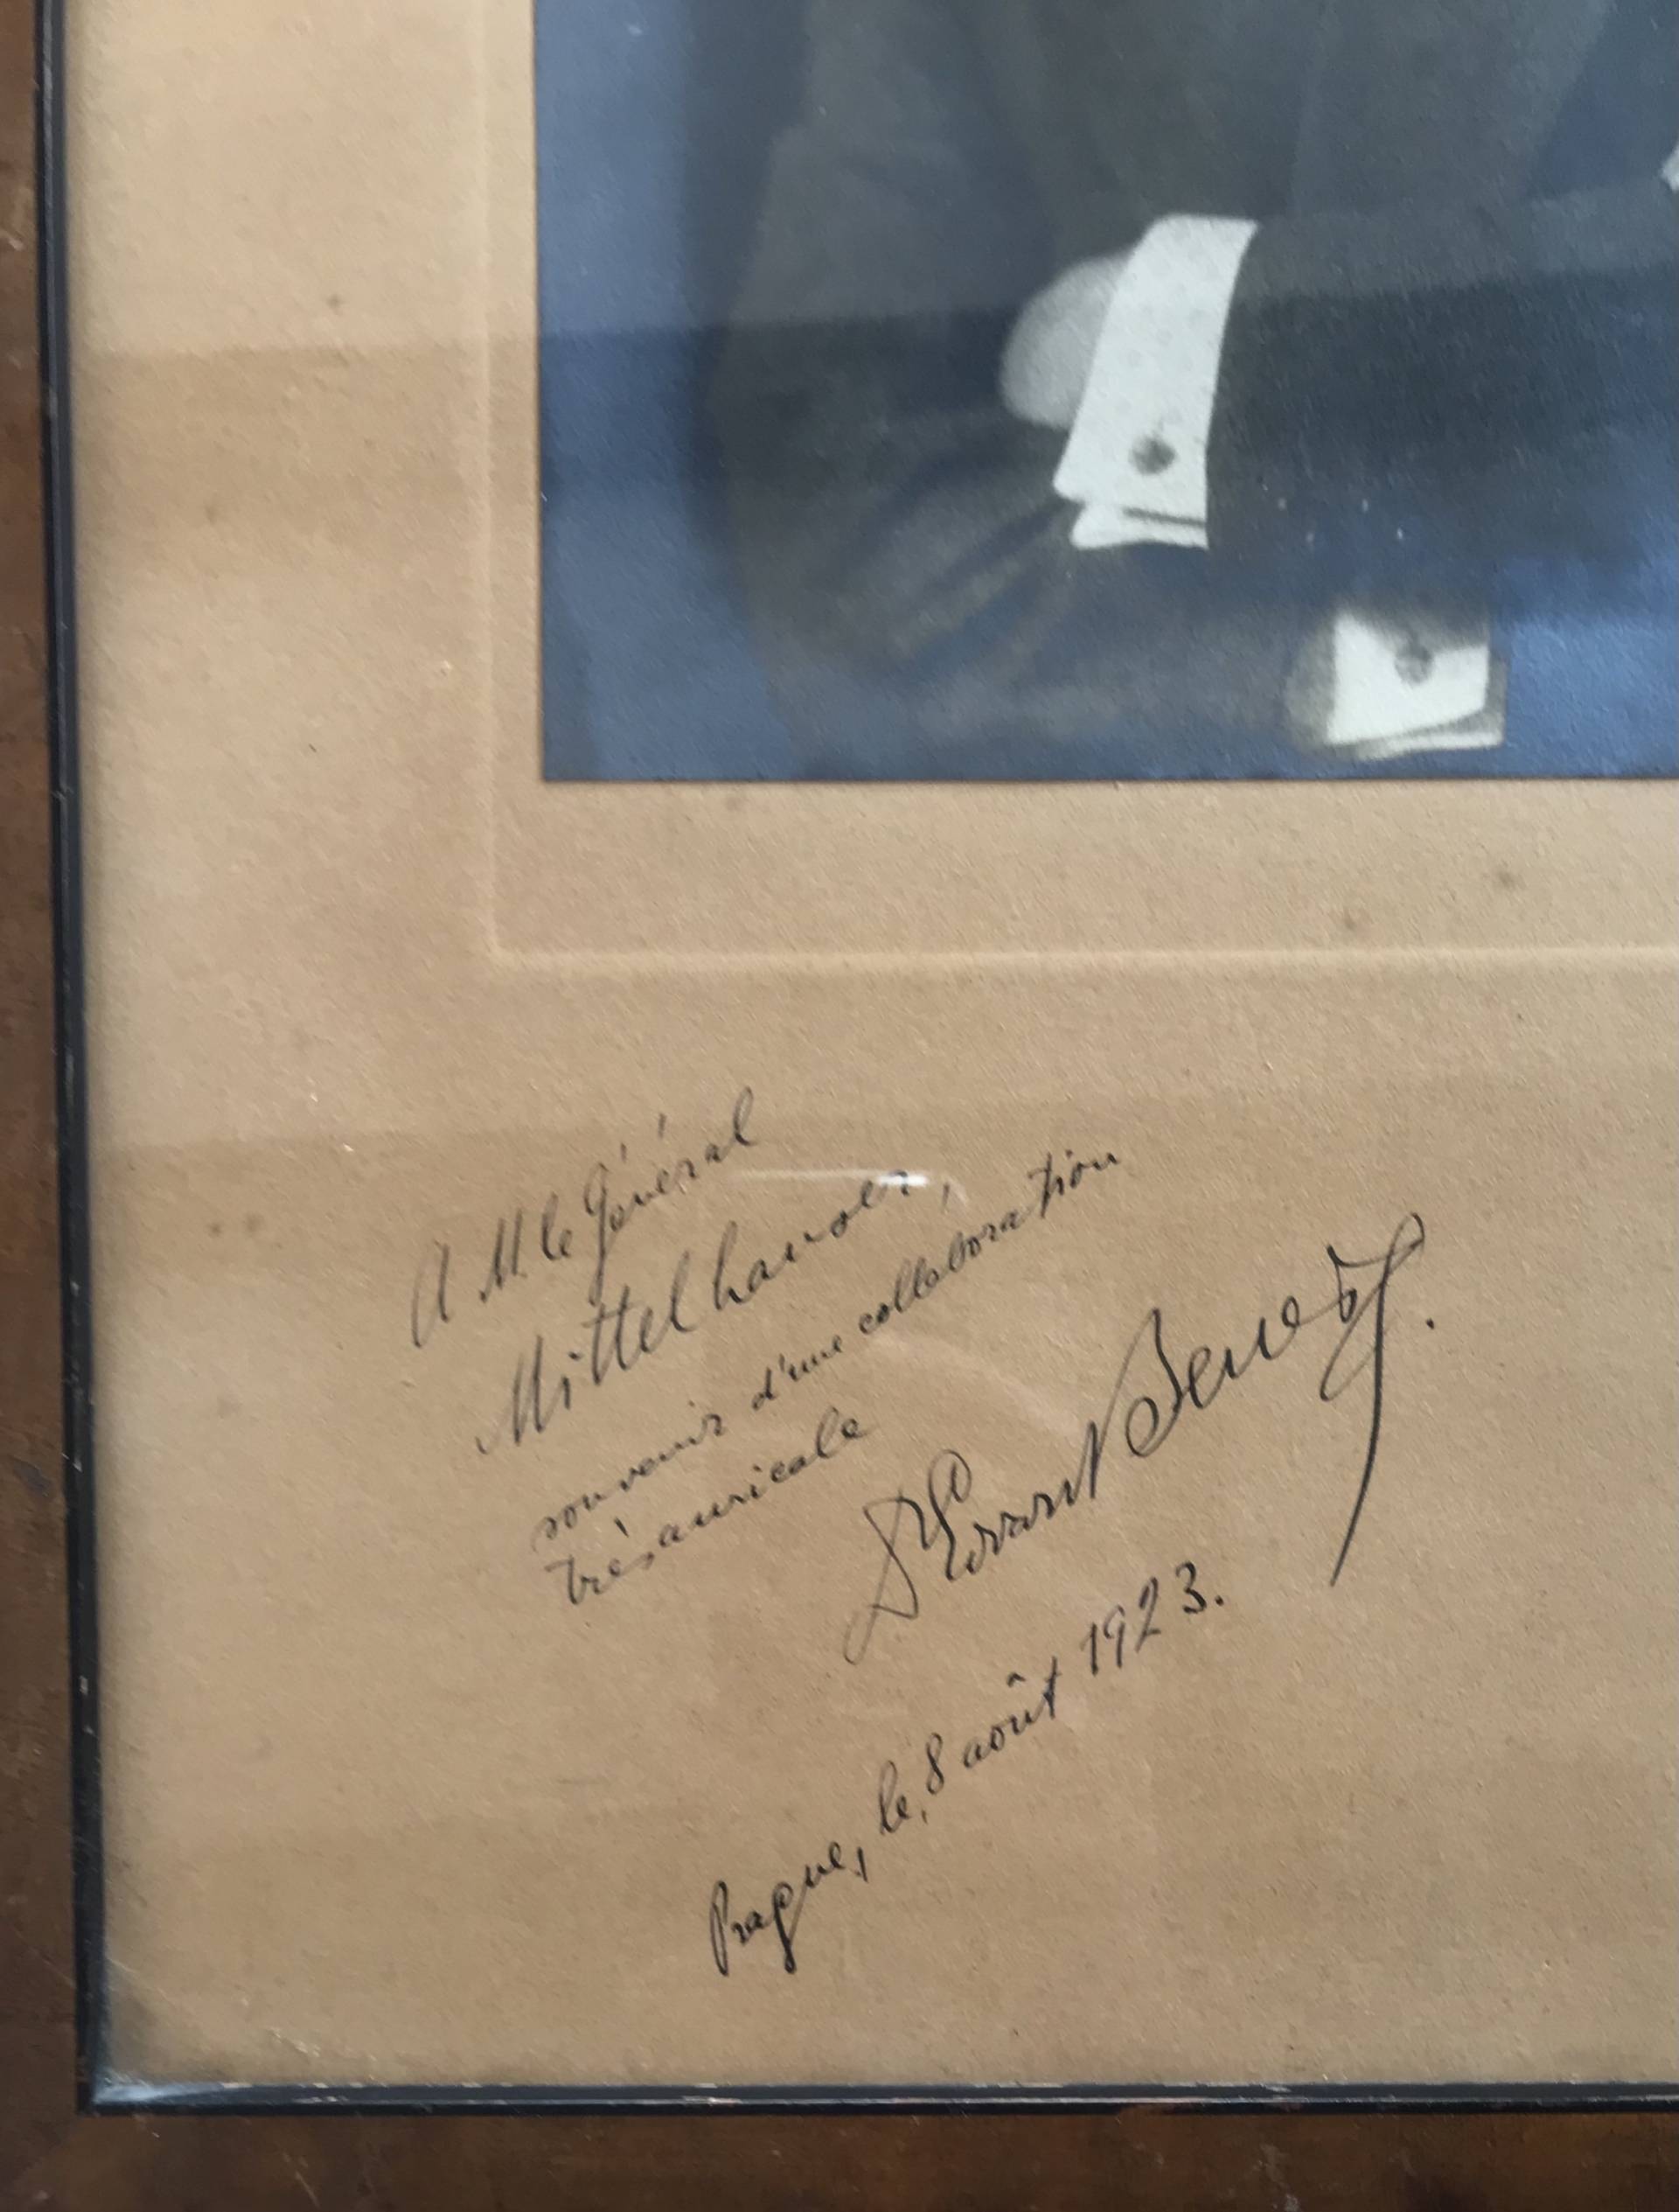 A M. le Général
Mittelhauser,
souvenir d'une collaboration
très amicale
Dr Edvard Beneš.
Prague, le, 8 août 1923.